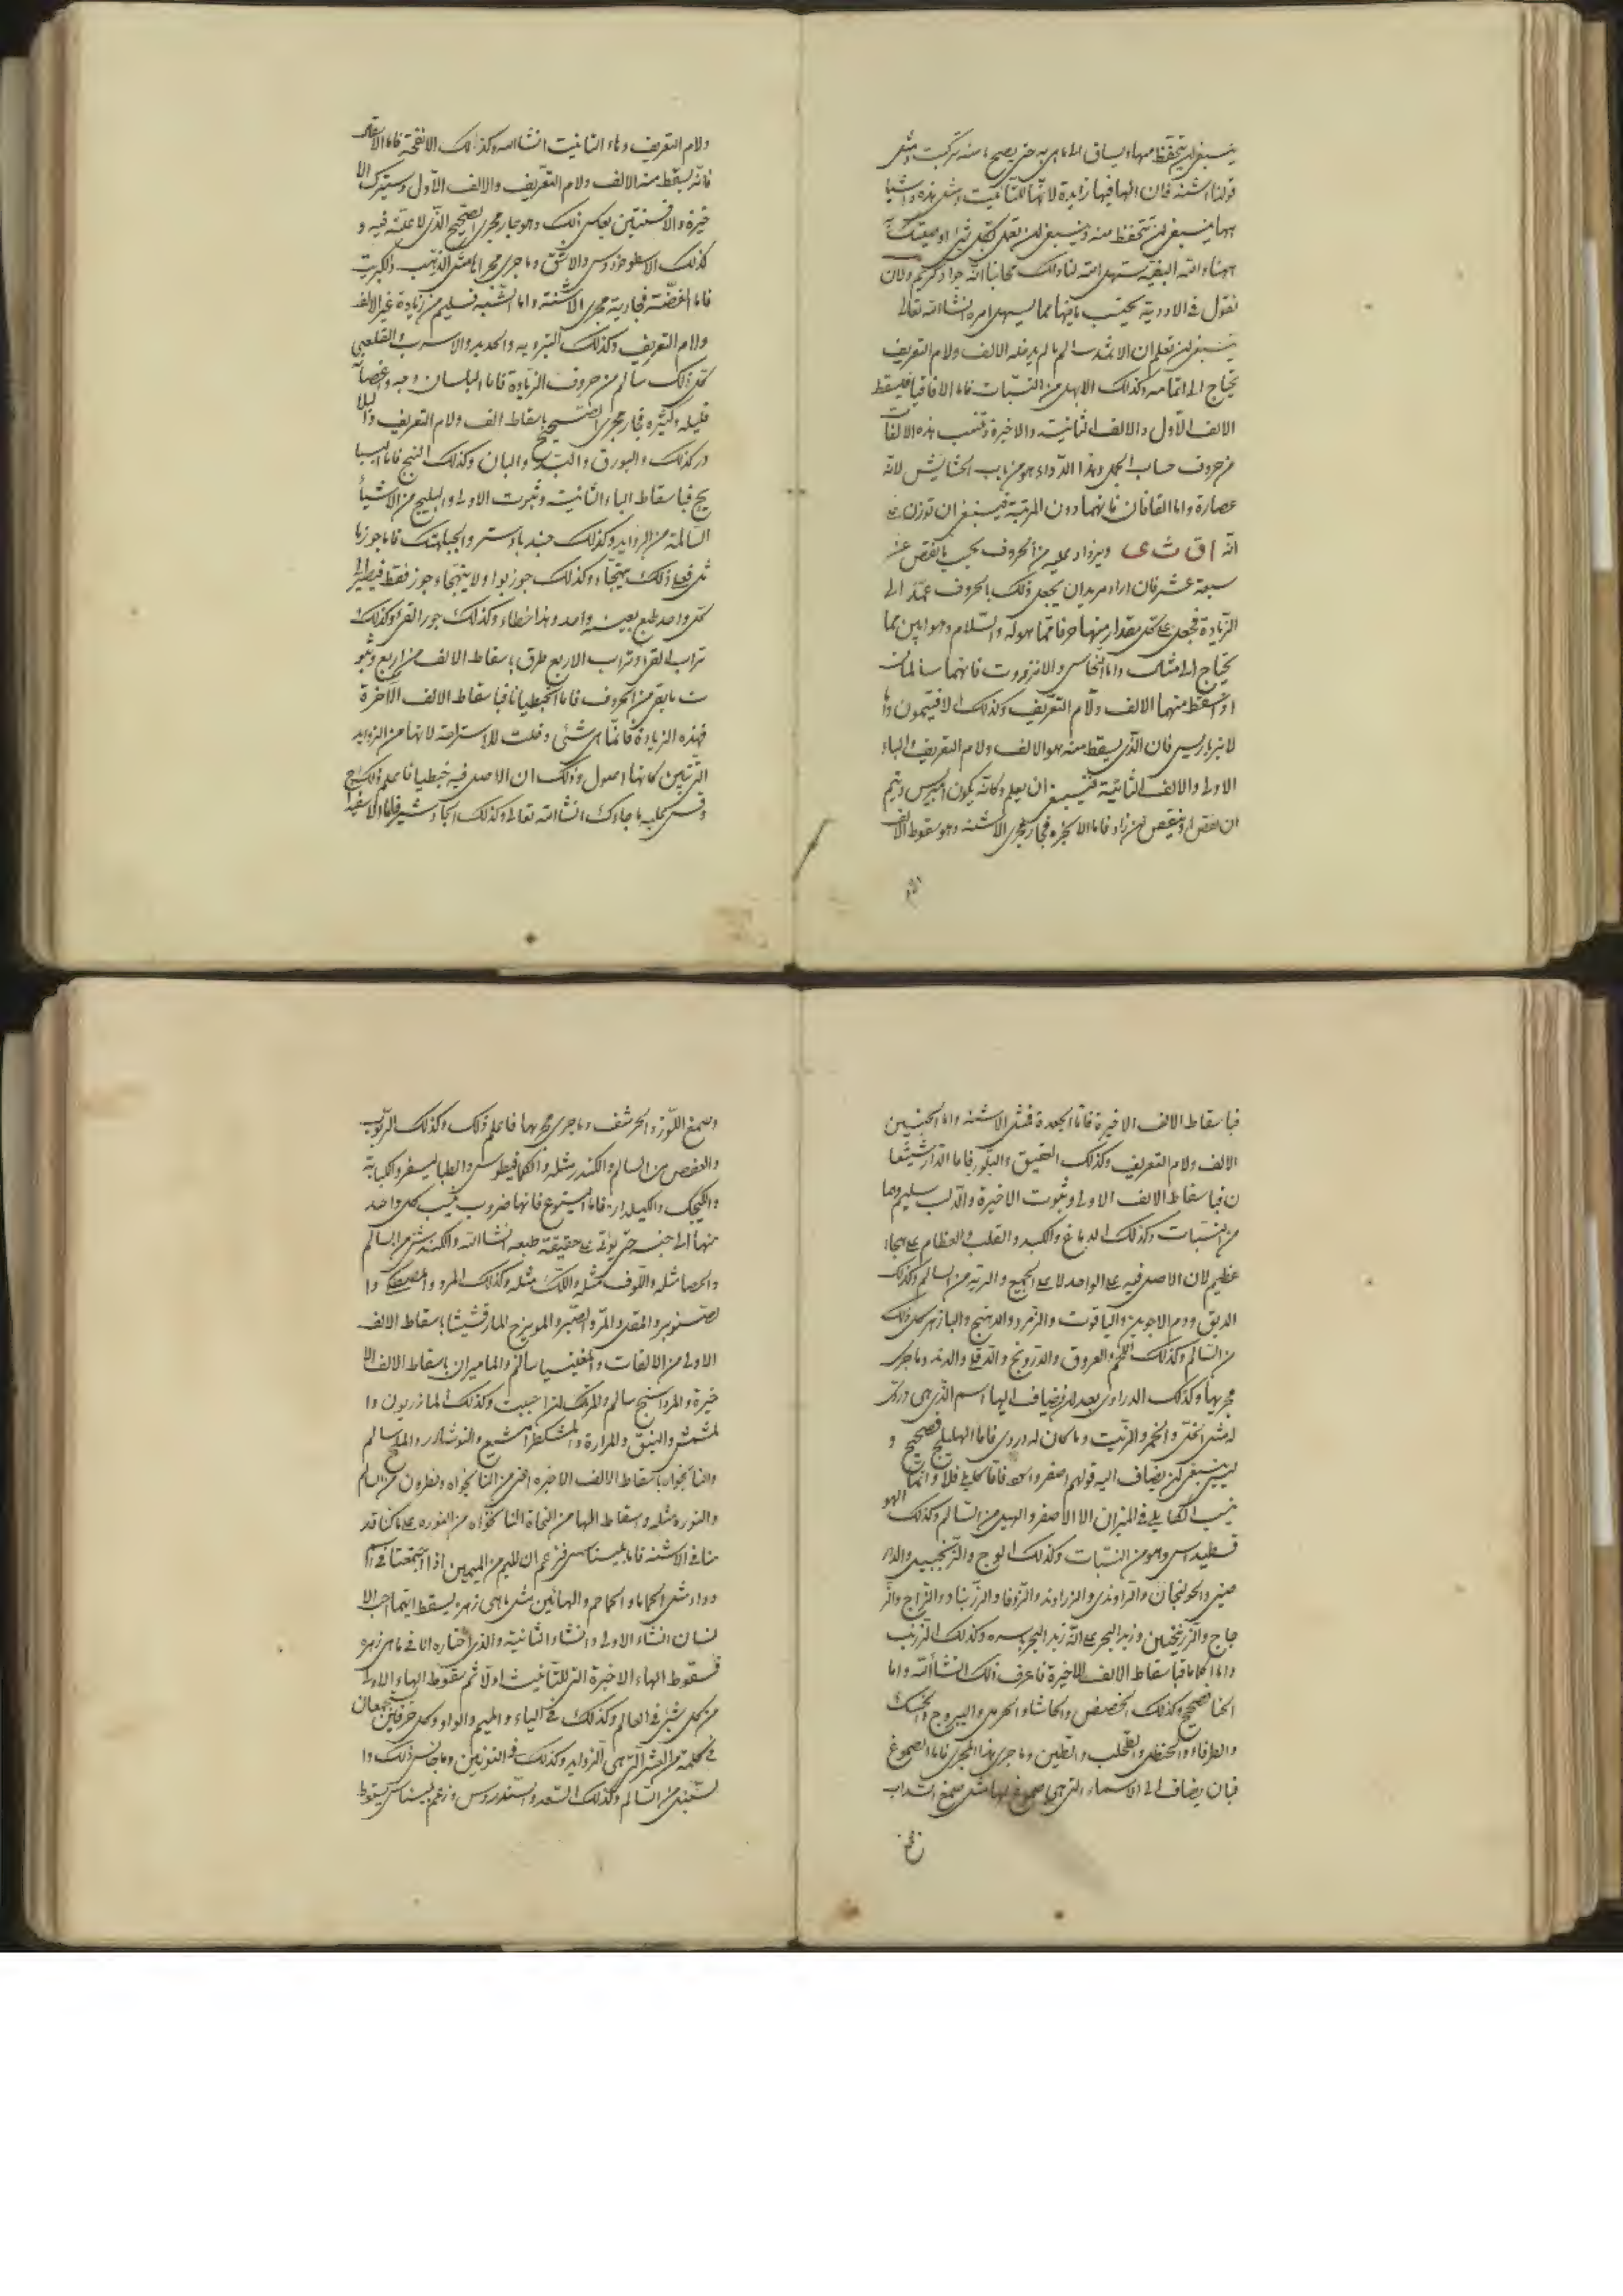 ينبغى ان يتحفظ منها ويساق الى ما هى به حتى يصح ما منه تركبت ومثل
قولنا اشنه فان الها فيها زايدة لانها للتانيث ومثل هذه واشيا
نقول فى الادوية بحسب ما فيها مما يسهل امره انشا الله تعالى
ينبغى ان تعلم ان الاثمد سالم ما لم يدخله الالف ولام التعريف
يحتاج الى اتمامه وكذلك الابهل من النبات فاما الاقاقيا فليسقط
الالف الاول والالف الثانيه والاخيرة وتنسب هذه الالفات
من حروف حساب الجمل وهذا الدواء هو من باب الحشايش لانه
عصارة واما القافان فانهما دون المرتبة فينبغى ان توزن على
انه ا ق ث ى ويزداد عليه من الحروف بحسب ما نقص عنه
سبعة عشر فان اراد مريد ان يجعل ذلك بالحروف عمد الى
الزيادة فجعل على كل مقدار منها حرفا مما هو له والسلام وهو ابين مما
يحتاج الى مثال واما النحاس والانزروت فانهما سالمان
او اسقط منهما الالف ولام التعريف وكذلك الافتيمون واما
لانبرباريس فان الذى يسقط منه هو الالف ولام التعريف والباء
الاولى والالف الثانية فينبغى ان يعلم وكانه يكون امبريس ويتم
ان نقص وينقص ان زاد فاما الانجره فجار مجرى الاشنه وهو سقوط الالف
ولام التعريف وهاء التانيث انشا الله وكذلك الانفحة فاما الا
فانه يسقط منه الالف ولام التعريف والالف الاول وستترك الا
خيرة والافسنتين بعكس ذلك وهو جار مجرى الصحيح الذى لا علة فيه و
كذلك الاسطوخودوس والاشق وما جرى مجراها مثل الذهب والكبريت
فاما الفضة فجارية مجرى الاشنة واما الشبه فسليم من زيادة غير الالف
ولام التعريف وكذلك التبروبه والحديد والاسرب والقلعى
كل ذلك سالم من حروف الزيادة فاما البلسان وحبه واغصانه
قليله وكثيره فجار مجرى الصحيح باسقاط الف ولام التعريف والبلا
در كذلك والبورق والبند والبان وكذلك البنج فاما البسبا
يج فباسقاط الباء الثانيه وثبوت الاولى والبليج من الاشيا
السالمة من الزوايد وكذلك جندبادستر والجبلهنك فاما جوز ما
ثل فعلى ذلك يتهجاء وكذلك جوز بوا ولا يتهجاء جوز فقط فيصير الى
كل واحد طبع بعينه واحد وهذا خطاء وكذلك جوز القى وكذلك
تراب القى وتراب الاربع طرق باسقاط الالف من اربع وثبو
ت ما بقى من الحروف فاما الجنطيانا فباسقاط الالف الاخرة
فهذه الزيادة فانما هى شئى دخلت للاستراحة لانها من الزوايد
التى تبين كانها اصول وذلك ان الاصل فيه جنطيان فاعلم ذلك
وقس عليه ما جاءك انشا الله تعالى وكذلك الجاوشير فاما
فباسقاط الالف الاخيرة فاما الجعدة فمثل الاشنه واما الجبسين
الالف ولام التعريف وكذلك العقيق والبلور فاما الدارشيشعا
ن فباسقاط الالف الاولى وثبوت الاخيرة والدلب سليم وهما
من النبات وكذلك الدماغ والكبد والقلب والعظام على هجاء
عظيم لان الاصل فيه على الواحد لا على الجميع والريه من السالم وكذلك
الدبق ودم الاخوين والياقوت والزمرد والدهنج والبازهر كل ذلك
من السالم وكذلك اللحم والعروق والدرونج والدفلى والدند وما جرى
مجريها وكذلك الدرادى بعد ان يضاف اليها اسم الذى هى دردى
له مثل الخل والخمر والزيت وما كان له دردى فاما الهليلج فصحيح و
ليس ينبغى ان يضاف اليه قولهم اصفر واسود فاما كابلى فلا وانما
ينسب الكابلى فى الميزان الا الاصفر والهيل من السالم وكذلك الهو
قسطيداس وهو من النبات وكذلك الوج والزنجبيل والدار
صينى والخولنجان والراوندى والزراوند والزوفا والزرنباد والزاج والز
جاج والزرنيخين وزبد البحر على انه زبد البحر باسره وكذلك الزرنب
واما الحاما فباسقاط الالف الاخيرة فاعرف ذلك انشا الله واما
الحنا فصحيح وكذلك الحضض والحاشا والحرمل واليبروح والحسك
والطرفاء والحنظل والطحلب والطين وما جرى هذا المجرى فاما الصموغ
فبان يضاف الى الاسماء التى هى صموغ لها مثل صمغ السداب
وصمغ اللوز والحرشف وما جرى مجريها فاعلم ذلك وكذلك الزيوت
والعفص من السالم والكندر مثله والكمافيطوس والطباليسفر والكبابة
والكيكج والكيلدار فاما اليتوع فانها ضروب ينسب كل واحد
منها الى جنسه حتى يؤتى على حقيقة طبعه انشا الله والكندش من السالم
والحصا مثله واللوف مثله واللك مثله وكذلك المرو والمصطكى وا
لصنوبر والمقل والمر والصبر والمويزج المارقشيثا باسقاط الالف
الاولى من الالفات والمغنيسيا سالم والماميران باسقاط الالف الا
خيرة والمرداسنج سالم والمرتك ان احببت وكذلك المازريون وا
لمشمش والنبق والمرارة والمشكطرامشيع والنوشادر والملح سالم
والنانخواه باسقاط الالف الاخيره اعنى من النانخواه ونطرون من السالم
والنوره مثله واسقاط الها من النحاة النانخواه من النوره على ما كنا قد
منا فى الاشنه فاما بليناس فزعم ان للميم من الميمين اذا اجتمعتا فى
دواء مثل الحماما والحماحم والهائين مثل ماهى زهره يسقط ايتهما احب الا
نسان انشاء الاولى وانشاء الثانية والذى اختاره انا فى ماهى زهره
فسقوط الهاء الاخيرة التى للتانيث اولا ثم سقوط الهاء الاولى
من كل شئى فى العالم وكذلك فى الياء والميم والواو وكل حرفين يجتمعان
فى كلمة من العشر التى هى الزوايد وكذلك فى النونين وما جانس ذلك وا
لسنبل من السالم وكذلك السعد والسندروس وزعم بليناس بسقوط